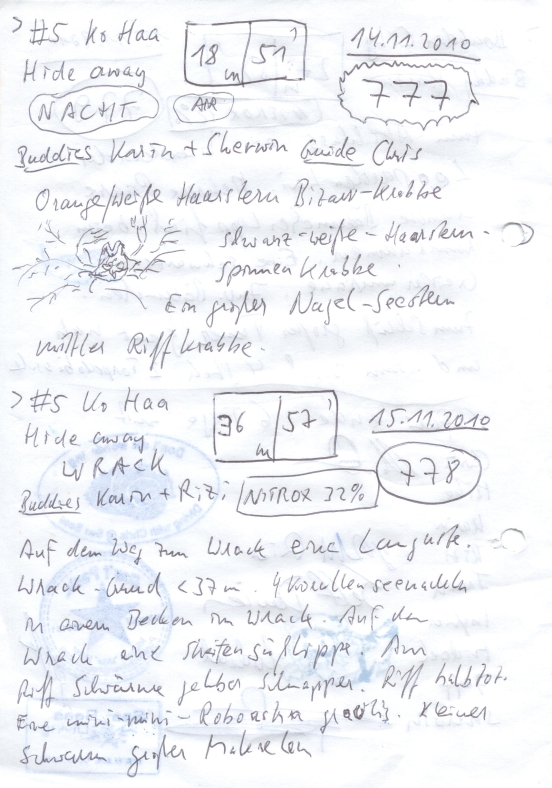 > #5 Ko Haa
18 m 51'
14.11.2010
Hide away
777
NACHT
AIR
Buddies Karin + Sherwin Guide Chris
Orange/weiße Haarstern Bizarr-Krabbe
schwarz-weiße-Haarstern-
spinnenkrabbe.
Ein großer Nagel-Seestern
mittler Riffkrabbe.
> #5 Ko Haa
36 m 57'
15.11.2010
Hide away
778
WRACK
Buddies Karin + Rizi
NITROX 32%
Auf dem Weg zum Wrack eine Languste.
Wrack-Grund <37m. 4 Korallenseenadeln
in einem Becken im Wrack. Auf dem
Wrack eine Süßlippe. Am
Riff Schwärme gelber Schnapper. Riff halbtot.
Eine mini-mini-Roboastra gracilis. Kleiner
Schwarm großer Makrelen